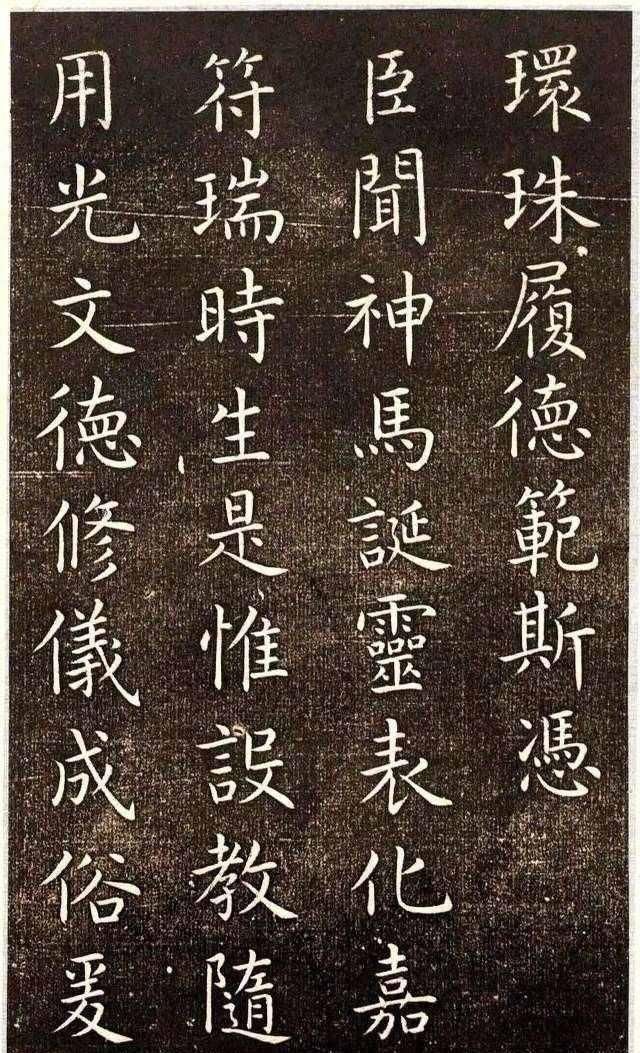 環珠履德範斯憑
臣聞神馬誕靈表化嘉
符瑞時生是惟設教隨
用光文德修儀成俗爰